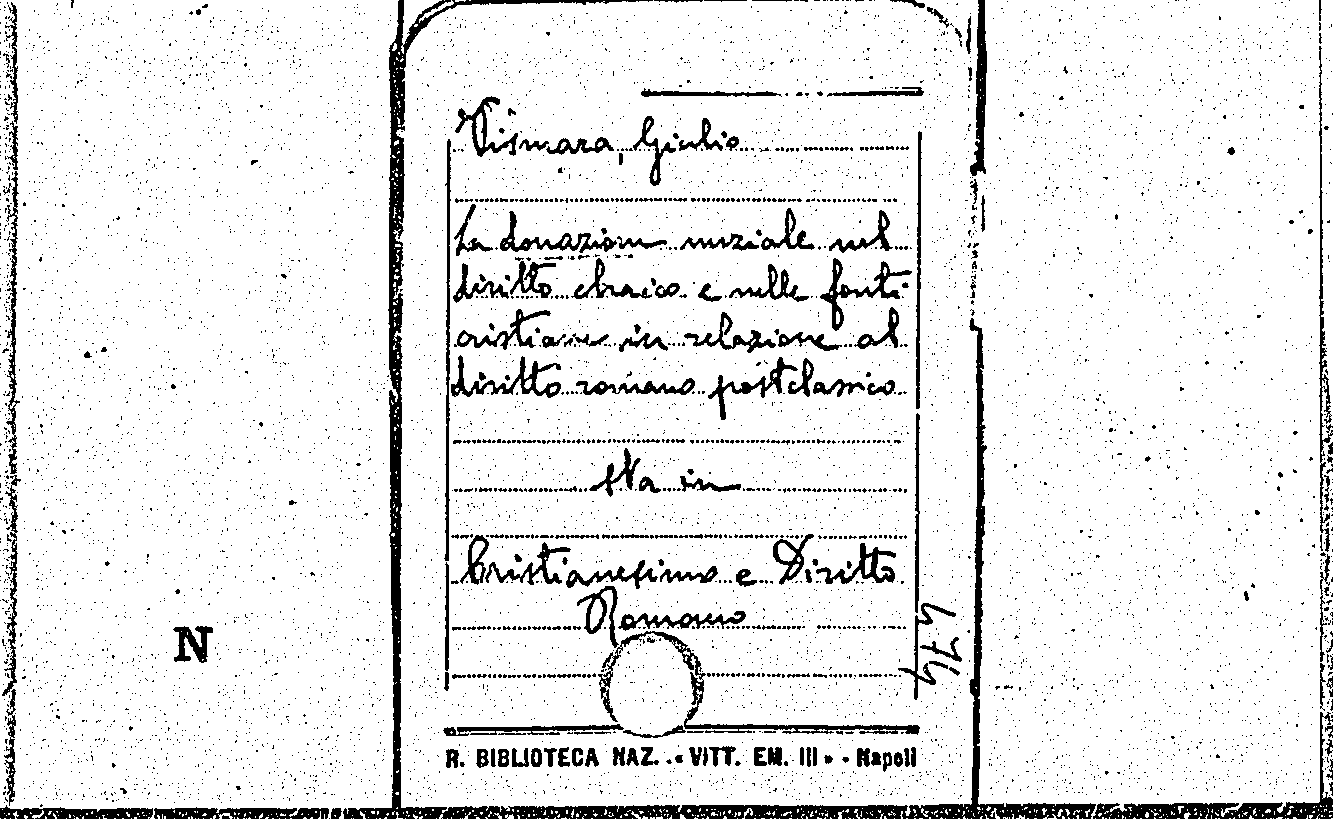 Vismara, Giulio
La donazione nuziale nel
diritto ebraico e nelle fonti
cristiane in relazione al
diritto romano postclassico
Sta in
Cristianesimo e Diritto
Romano
474
N
R. BIBLIOTECA NAZ. « VITT. EM. III » - Napoli